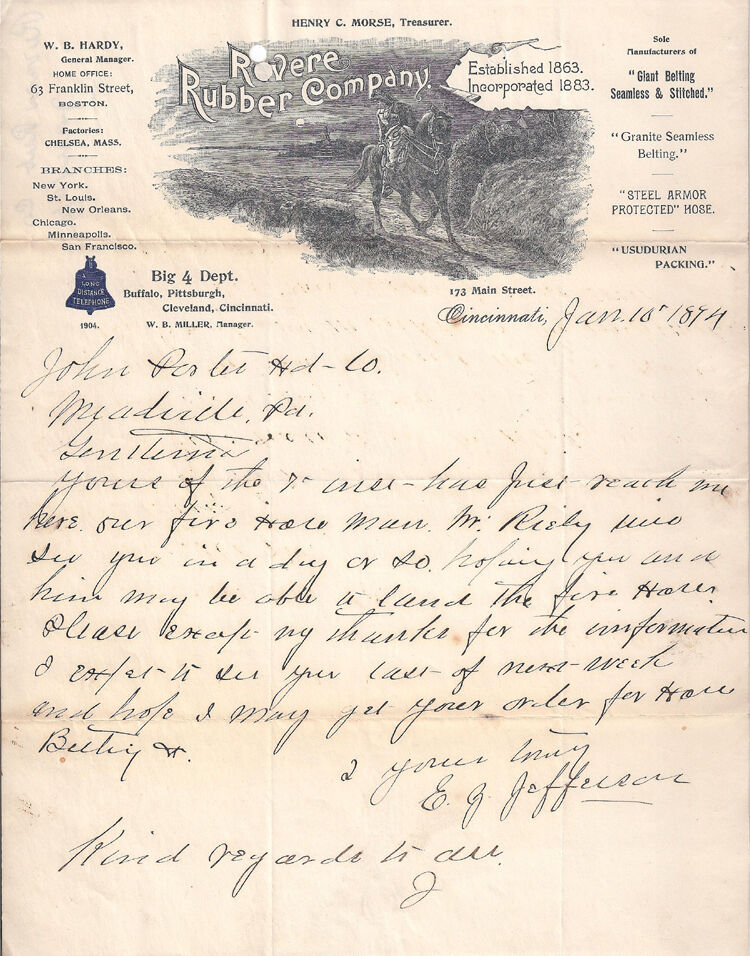 HENRY C. MORSE, Treasurer.
W. B. HARDY,
General Manager.
HOME OFFICE:
63 Franklin Street,
BOSTON.
Factories:
CHELSEA, MASS.
BRANCHES:
New York.
St. Louis.
New Orleans.
Chicago.
Minneapolis.
San Francisco.
LONG
DISTANCE
TELEPHONE
1904.
Revere
Rubber Company.
Established 1863.
Incorporated 1883.
Sole
Manufacturers of
"Giant Belting
Seamless & Stitched."
"Granite Seamless
Belting."
"STEEL ARMOR
PROTECTED" HOSE.
"USUDURIAN
PACKING."
Big 4 Dept.
Buffalo, Pittsburgh,
Cleveland, Cincinnati.
W. B. MILLER, Manager.
173 Main Street.
Cincinnati, Jan. 10 1894
John Porter Hd-Co.
Meadville, Pa.
Gentlemen
Yours of the 7 inst has just reach me
here. our fire Hose Man Mr. Riely will
see you in a day or so. hoping you and
him may be able to land the fire Hose.
Please except my thanks for the imformation
I expet to see you last of next week
and hope I may get your order for Hose
Belting &.
I yours truly
E. G. Jefferson
Kind regards to all.
J